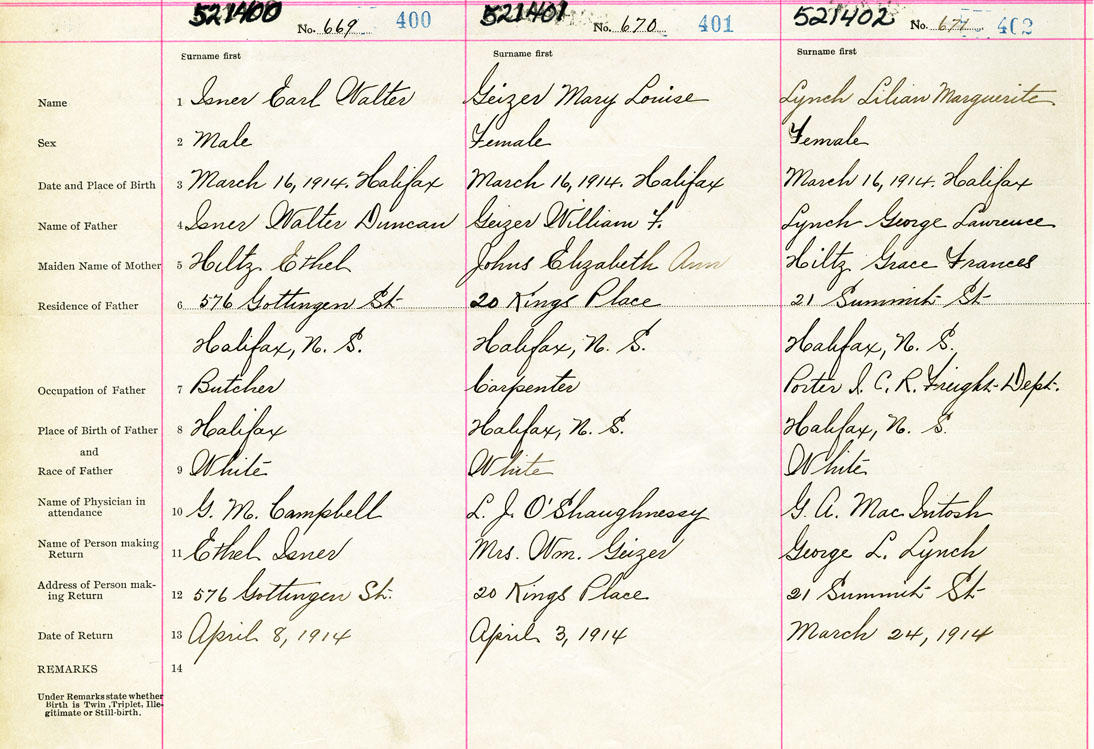 521400 521401 521402
No. 669 400 No. 670 401 No. 671 402
Surname first Surname first Surname first
Name 1 Isner Earl Walter Geizer Mary Louise Lynch Lilian Marguerite
Sex 2 Male Female Female
Date and Place of Birth 3 March 16, 1914. Halifax March 16, 1914. Halifax March 16, 1914. Halifax
Name of Father 4 Isner Walter Duncan Geizer William F. Lynch George Lawrence
Maiden Name of Mother 5 Hiltz Ethel Johns Elizabeth Ann Hiltz Grace Frances
Residence of Father 6 576 Gottingen St. 20 Kings Place 21 Summit St.
Halifax, N. S. Halifax, N. S. Halifax, N. S.
Occupation of Father 7 Butcher Carpenter Porter I. C. R. Freight Dept.
Place of Birth of Father 8 Halifax Halifax, N. S. Halifax, N. S.
and
Race of Father 9 White White White
Name of Physician in
attendance 10 G. M. Campbell L. J. O'Shaughnessy G. A. Mac Intosh
Name of Person making
Return 11 Ethel Isner Mrs. Wm. Geizer George L. Lynch
Address of Person mak-
ing Return 12 576 Gottingen St. 20 Kings Place 21 Summit St.
Date of Return 13 April 8, 1914 April 3, 1914 March 24, 1914
REMARKS 14
Under Remarks state whether
Birth is Twin, Triplet, Ille-
gitimate or Still-birth.